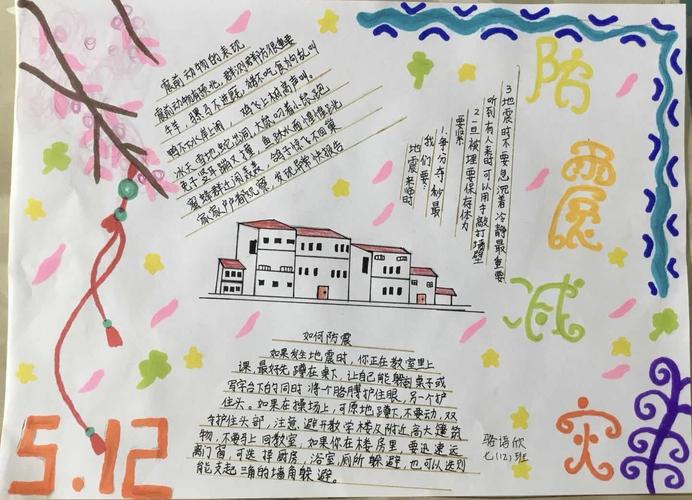 防震减灾
震前动物的表现
震前动物有预兆,群测群防很重要
牛羊,骡马不进厩,猪不吃食狗乱叫
鸭不下水岸上闹,鸡飞上树高声叫。
冰天雪地蛇出洞,大鼠叼着小鼠跑
兔子竖耳蹦又撞,鱼跃水面惶惶跳
蜜蜂群迁闹轰轰,鸽子惊飞不回巢
家家户户都观察,发现异常快报告
地震来临时
我们要:
1.争分夺秒最
要紧
2一旦被埋要保存体力
听到有人来时可以用手敲打墙壁
3地震时不要急沉着冷静最重要
如何防震
如果发生地震时,你正在教室里上
课,最好先蹲在桌下,让自己能躲到桌子或
写字台下的同时将个胳膊护住眼,另一个护
住头。如果在操场上,可原地蹲下,不要动,双
手护住头部,注意避开教学楼及附近高大建筑
物,不要马上回教室,如果你在楼房里,要迅速远
离门窗,可选择厨房,浴室,厕所躲避,也可以选则
能支起三角的墙角躲避。
5.12
骆语欣
七(12)班